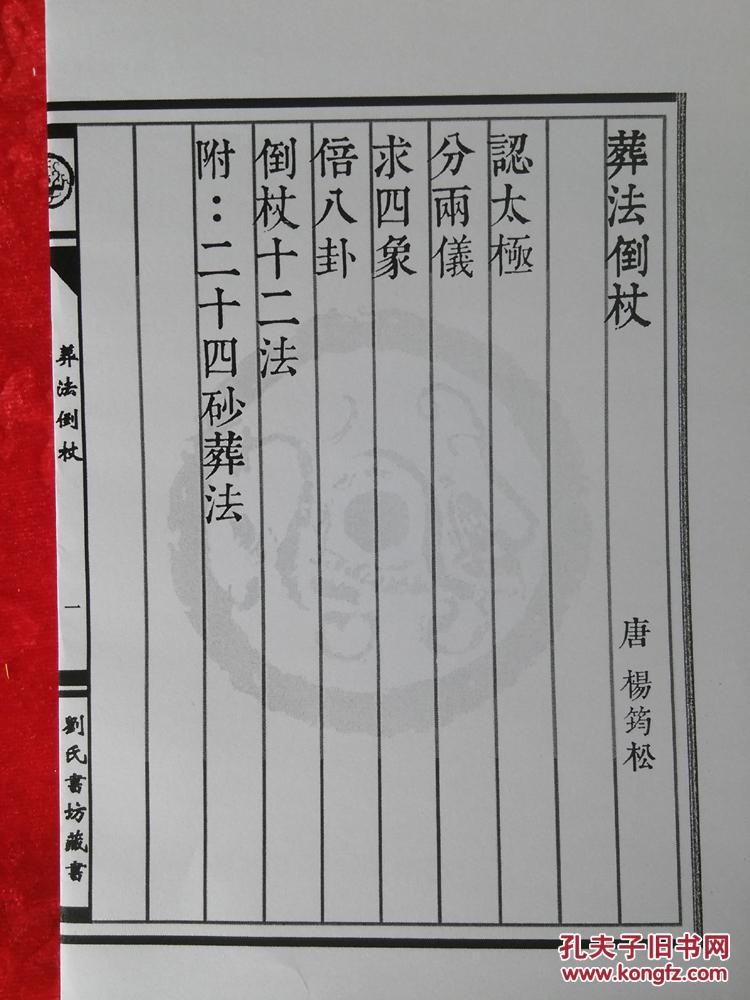 葬法倒杖
唐 楊筠松
認太極
分兩儀
求四象
倍八卦
倒杖十二法
附：二十四砂葬法
葬法倒杖
一
劉氏書坊藏書
孔夫子旧书网
www.kongfz.com